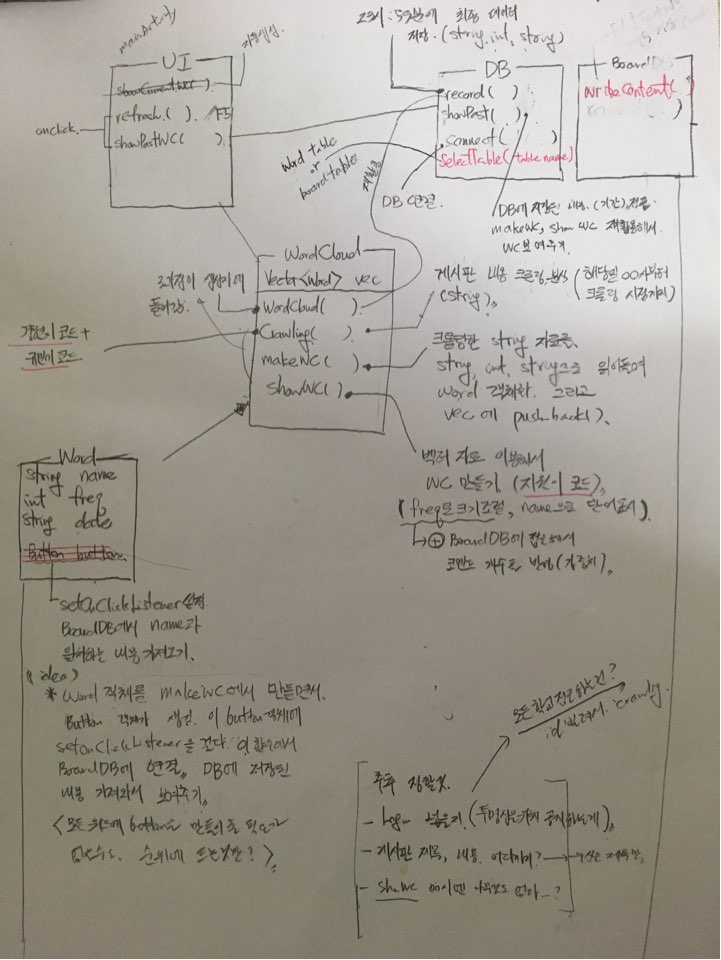 mainActivity
UI
자동생성.
showCurrentWC( ).
refresh.( ). /F5
onclick.
showPastWC( ).
최종 데이터
저장. (string, int, string)
DB
record( )
showPast( )
connect( )
selectTable( table name)
Board DB
writeContent( )
word table
or
board table
재활용
DB 연결.
DB에 저장된 내용. (기간)
makeWC, show WC 재활용해서.
WC 보여주기.
WordCloud
Vector<Word> vec
WordCloud( ).
Crawling( ).
makeWC( )
showWC( )
생성자에
들어감.
코드 +
코드
게시판 내용 크롤링
(string).
크롤링한 string 자료를
string, int, string으로
word 객체화. 그리고
vec에 pushback().
벡터 자료 이용해서
WC 만들기. (지원이 코드).
(freq로 크기조절, name으로 단어표시).
⊕ BoardDB에 접근해서
코멘트 개수를 반영(가중치).
Word
string name
int freq
string date
Button button
setOnClickListener 설정
BoardDB에서 name과
일치하는 내용 가져오기.
(idea)
* Word 객체를 makeWC에서 만들면서.
Button 객체가 생김. 이 button객체에
setOnClickListener을 건다. 이 함수에서
BoardDB에 연결. DB에 저장된
내용 가져와서 보여주기.
<모든 워드에 button을 만들어둘 필요가
없을수도. 순위에 뜨는것만?>
모든 학교 접근하는건?
id 빌려서. crawling.
추후 정할것.
- Login
- 게시판 제목, 내용. 어디까지?
- showWC